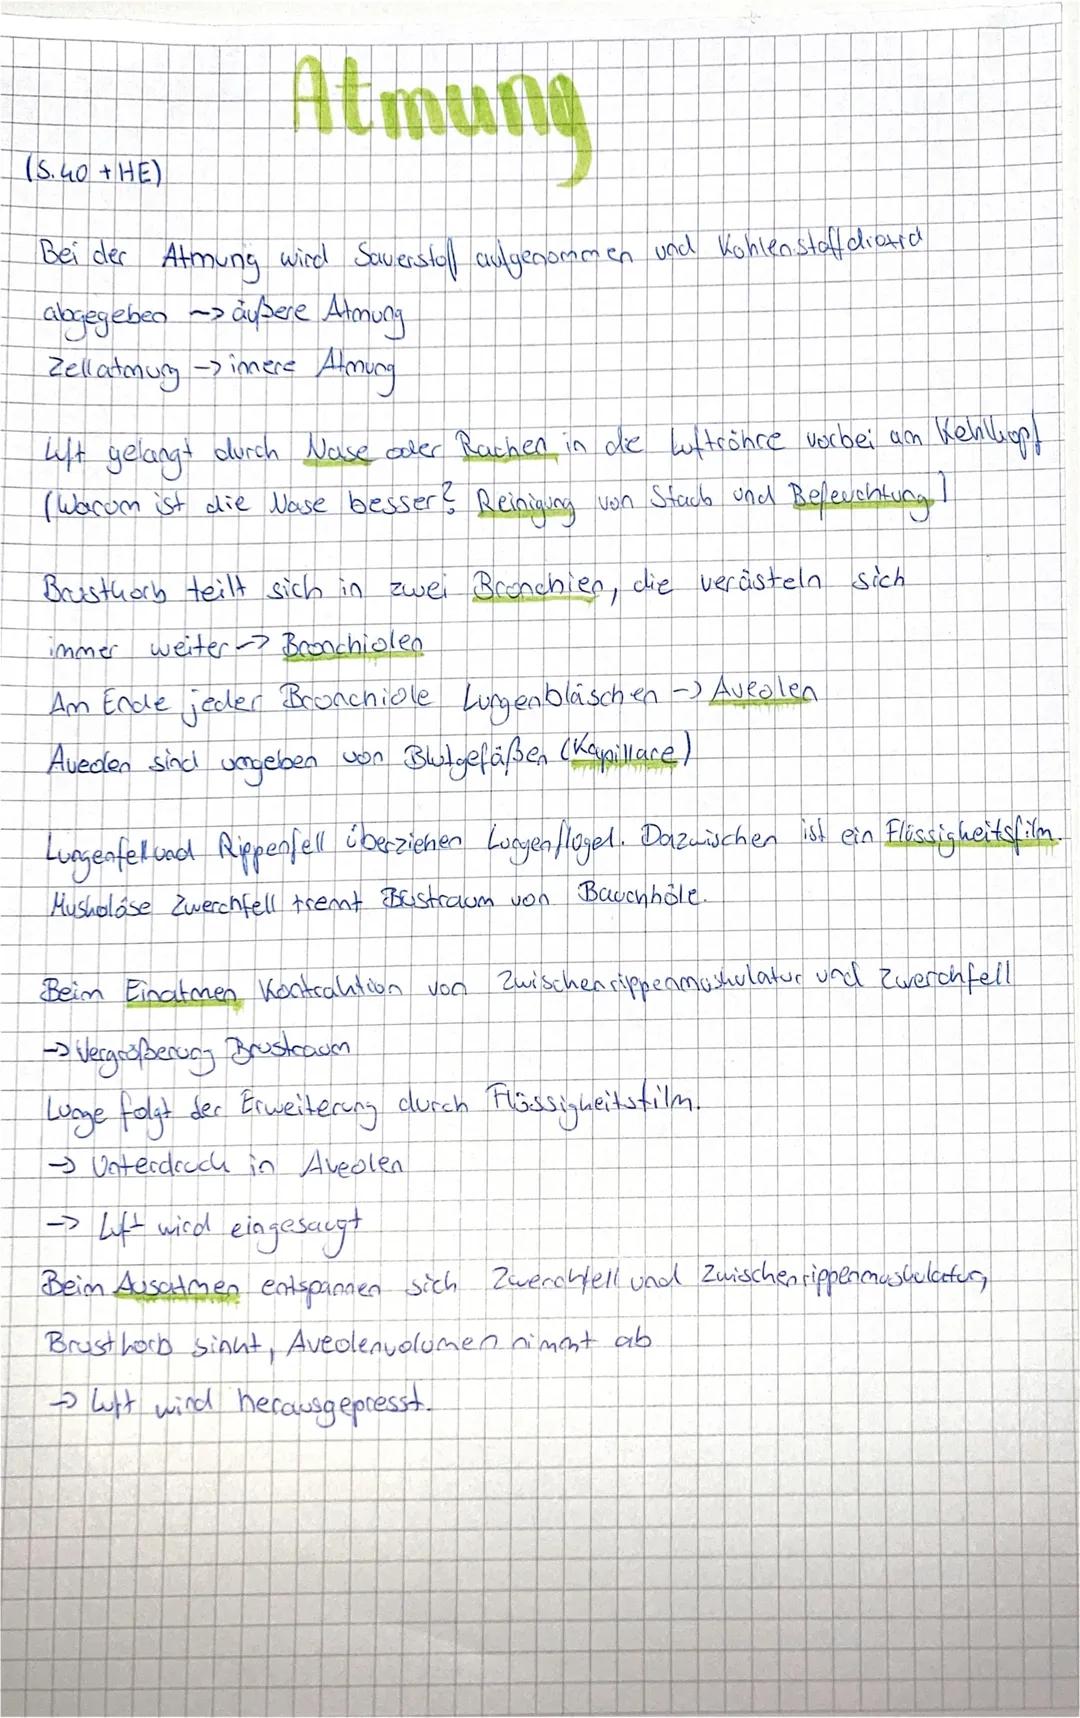 Atmung
(S. 40 + HE)
Bei der Atmung wird Sauerstoff aufgenommen und Kohlenstoffdioxid
abgegeben -> äußere Atmung
Zellatmung -> innere Atmung
Luft gelangt durch Nase oder Rachen in die Luftröhre vorbei am Kehlkopf
(Warum ist die Nase besser? Reinigung von Staub und Befeuchtung)
Brustkorb teilt sich in zwei Bronchien, die verästeln sich
immer weiter -> Bronchiolen
Am Ende jeder Bronchiole Lungenbläschen -> Aveolen
Aveolen sind umgeben von Blutgefäßen (Kapillare)
Lungenfell und Rippenfell überziehen Lungenflügel. Dazwischen ist ein Flüssigkeitsfilm.
Muskolöse Zwerchfell trennt Brustraum von Bauchhöle.
Beim Einatmen Kontraktion von Zwischenrippenmuskulatur und Zwerchfell
-> Vergrößerung Brustraum
Lunge folgt der Erweiterung durch Flüssigkeitsfilm.
-> Unterdruck in Aveolen
-> Luft wird eingesaugt
Beim Ausatmen entspannen sich Zwerchfell und Zwischenrippenmuskulatur,
Brustkorb sinkt, Aveolenvolumen nimmt ab
-> Luft wird herausgepresst.